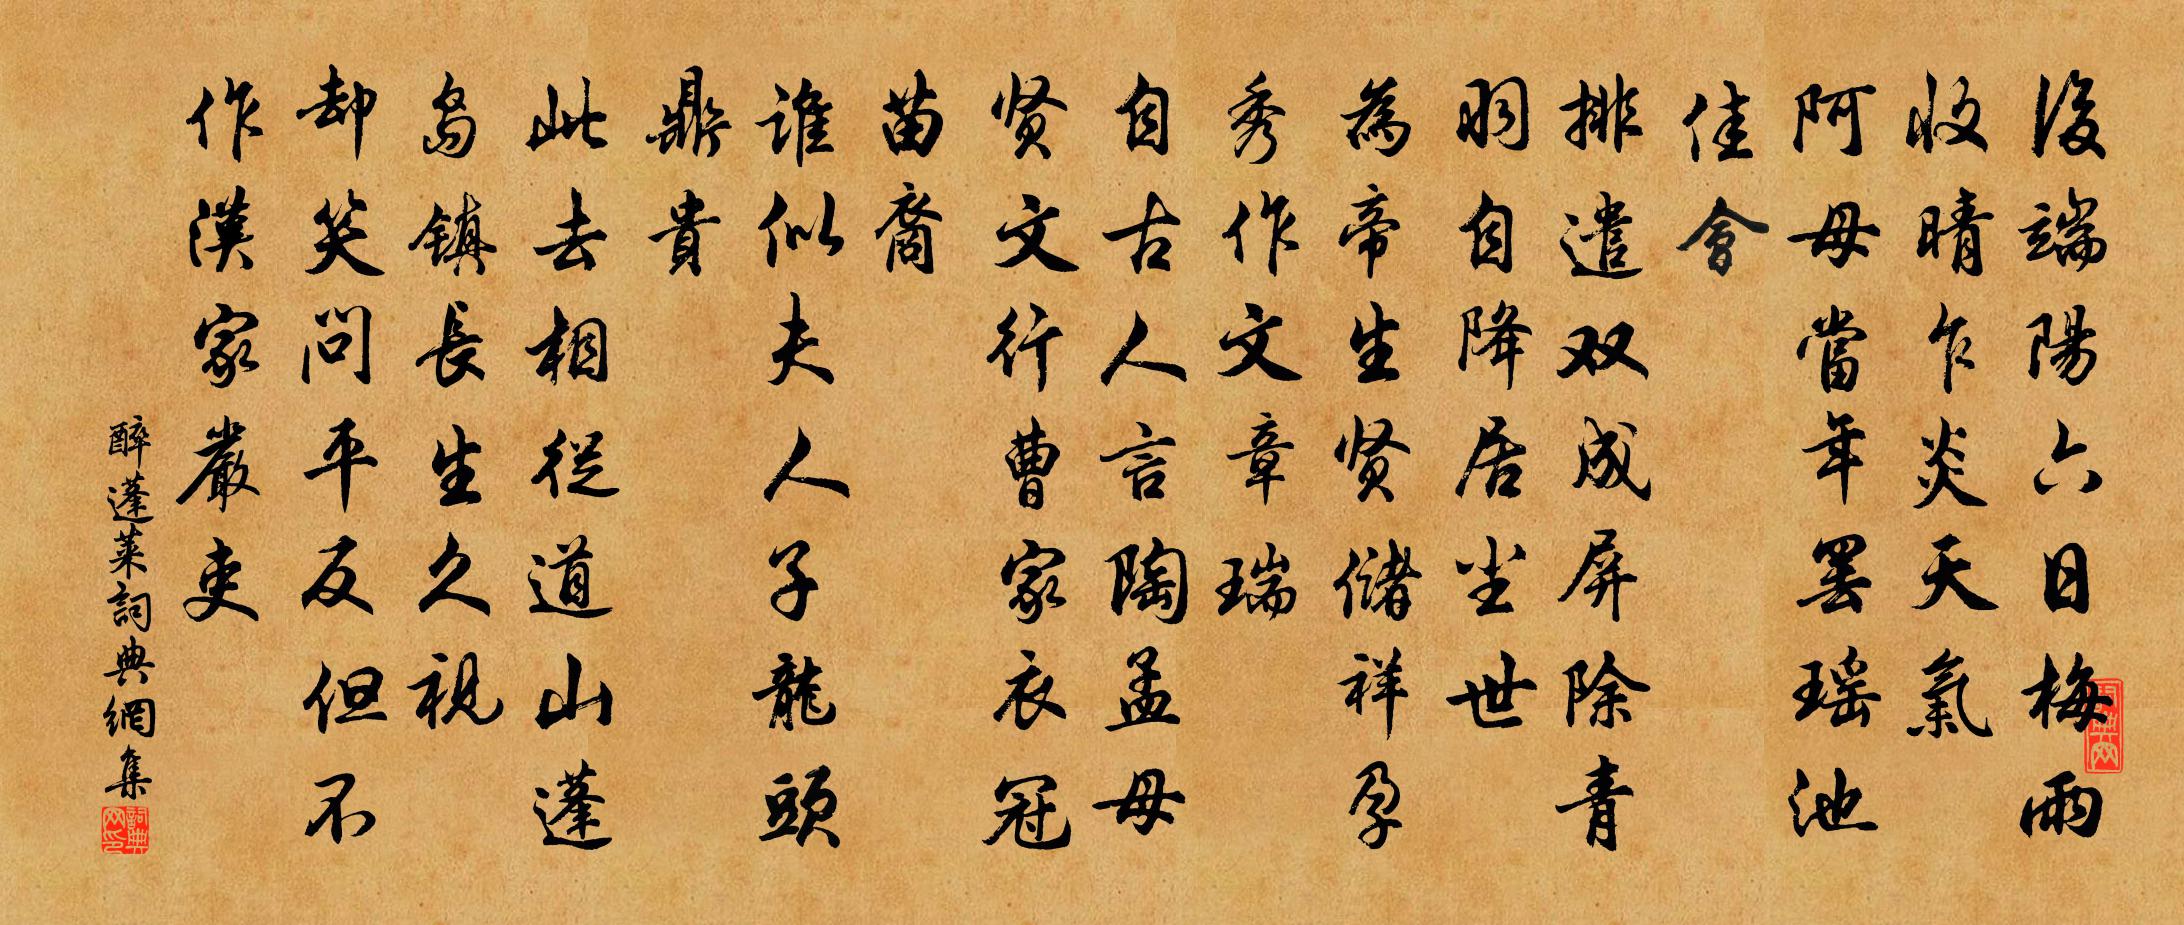 後端陽六日梅雨
收晴乍炎天氣
阿母當年罢瑶池
佳會
排遣双成屏除青
羽自降居尘世
為帝生贤儲祥孕
秀作文章瑞
自古人言陶孟母
贤文行曹家衣冠
苗裔
誰似夫人子龍頭
鼎貴
此去相從道山蓬
島鎮長生久視
却笑問平反但不
作漢家嚴吏
醉蓬莱詞典網集
詞典网
詞典网印